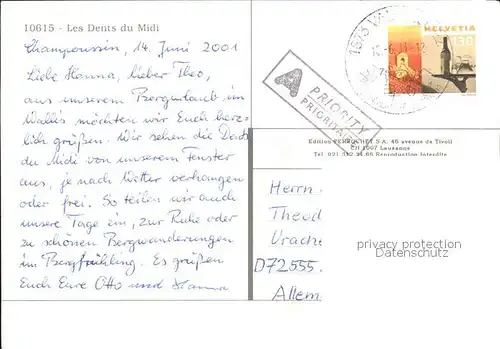 10615 - Les Dents du Midi
Champoussin, 14. Juni 2001
Liebe Hanna, lieber Theo,
aus unserem Bergurlaub im
Wallis möchten wir Euch herz-
lich grüßen. Wir sehen die Dents
du Midi von unserem Fenster
aus, je nach Wetter verhangen
oder frei. So teilen wir auch
unsere Tage ein, zur Ruhe oder
zu schönen Bergwanderungen
im Bergfrühling. Es grüßen
Euch Eure Otto und Hanna
HELVETIA
130
1873 VAL
A PRIORITY
PRIORITAIRE
Edition PERROCHET S.A. 45 avenue de Tivoli
CH 1007 Lausanne
Tel. 021 Reproduction interdite
Herrn
Theod
Urache
D72555
Allem
privacy protection
Datenschutz